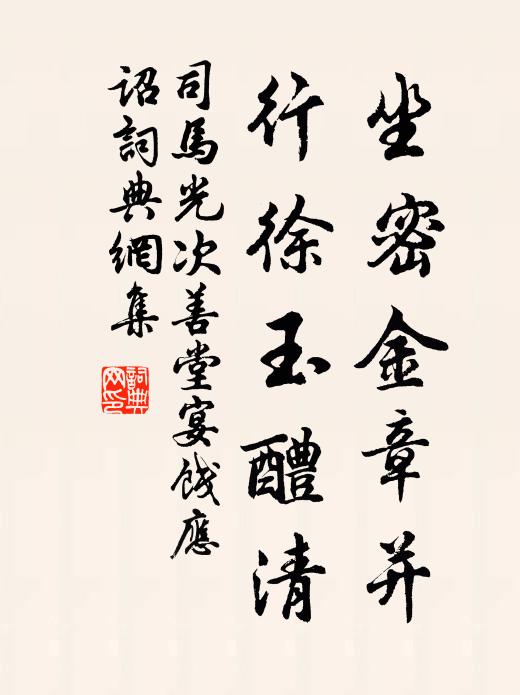 坐密金章并
行徐玉醴清
司馬光次善堂宴餞應
詔詞典網集
詞典网印